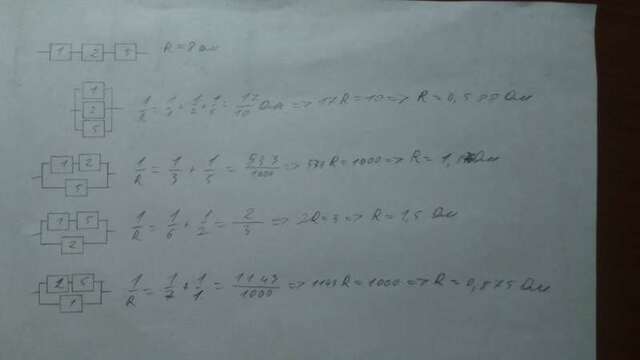 1 2 5 R = 8 Ом
1
2
5
1/R = 1/1 + 1/2 + 1/5 = 17/10 Ом => 17R = 10 => R = 0,5 Ом
1 2
5
1/R = 1/3 + 1/5 = 533/1000 => 533R = 1000 => R = 1, Ом
1 5
2
1/R = 1/6 + 1/2 = 2/3 => 2R = 3 => R = 1,5 Ом
2 5
1
1/R = 1/7 + 1/1 = 1143/1000 => 1143R = 1000 => R = 0,875 Ом